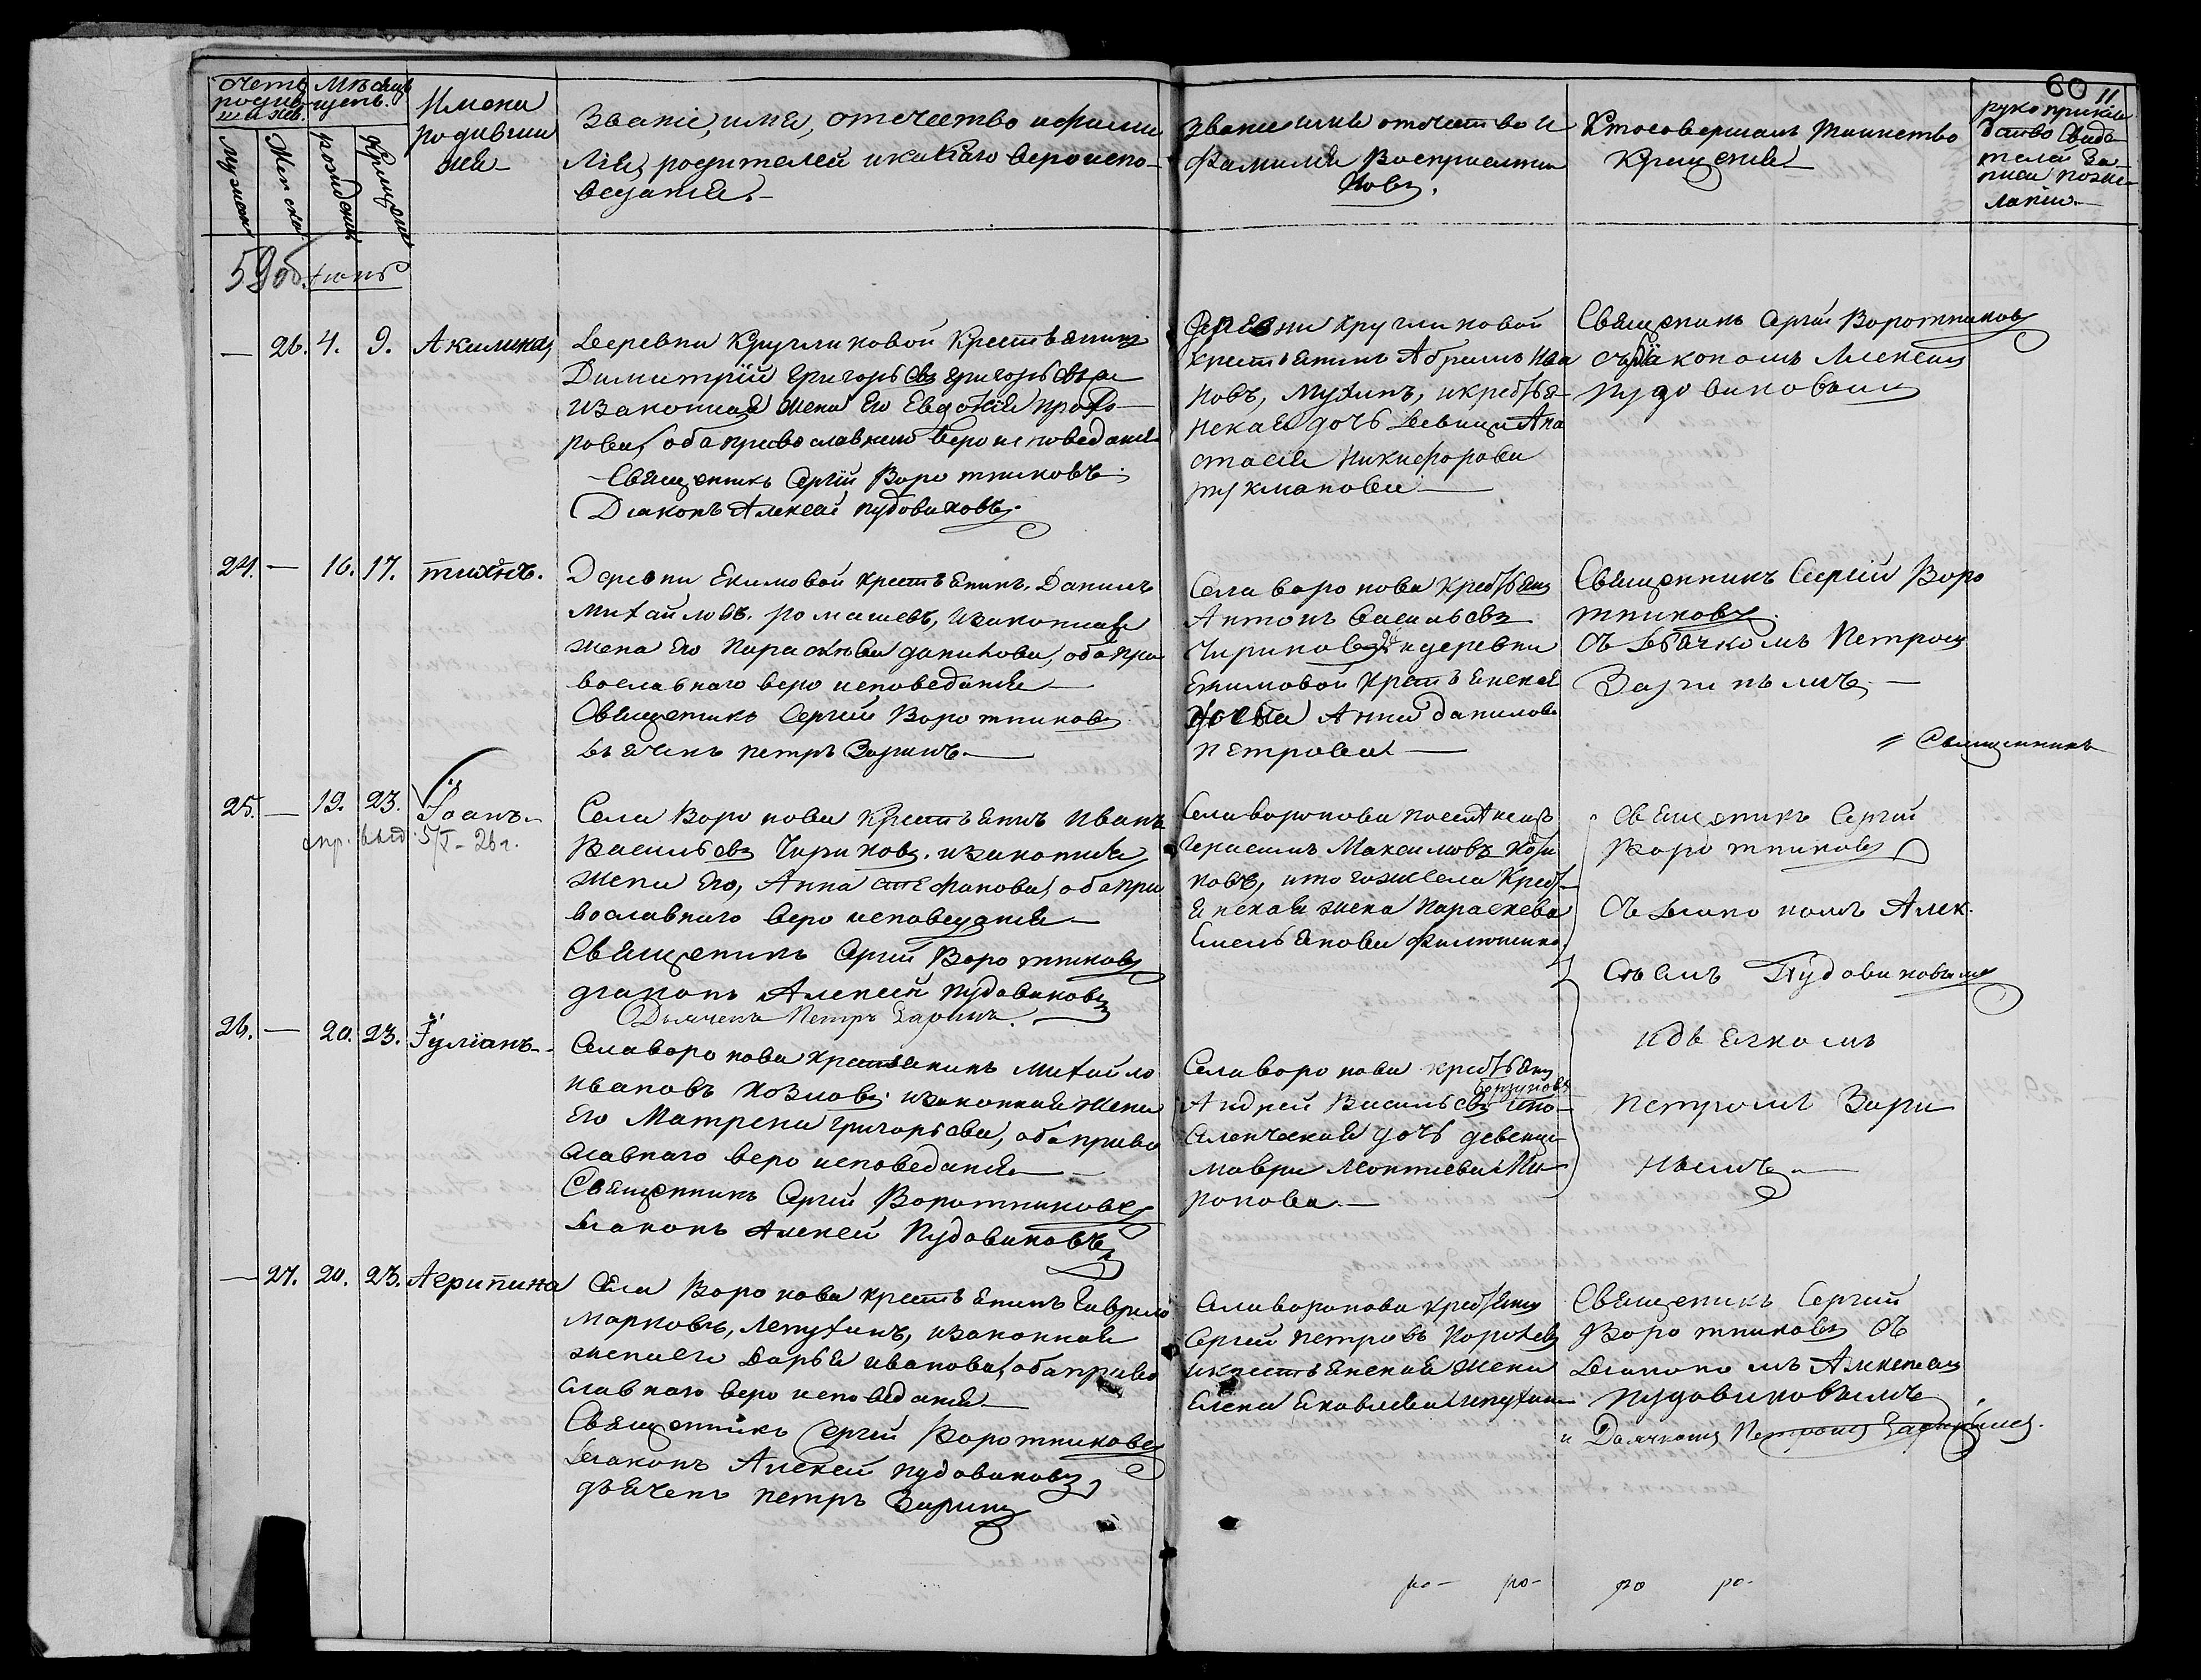 60
11
Счетъ родив-шихся.
Мѣсяцъ и день.
Мужеска
Женска
рожденія
Крещенія
Имена
родивши
хся
Званіе, имя, отечество и фами
лія, родителей и какого вероиспо-
веданія.
Званіе имя отечество и
Фамилія Восприемни
ковъ.
Кто совершалъ таинство
Крещенія
рукоприкла
дство свиде
телей за
писи по же
ланію
59об.
Іюнь
— 26. 4. 9. Акилина,
Деревни Кругликовой Крестьянинъ
Димитрій Григорьевъ Григорьевъ и
законная жена его Евдокія прохо-
рова, оба православнаго вероисповеданія
Священникъ Сергій Воротниковъ.
Діаконъ Алексей Пудовиковъ.
Деревни Кругликовой
крестьянинъ Абрамъ Ива
новъ, Мухинъ, и крестья-
нская дочь Девица Ана
стасія Никифорова
рукманова —
Священникъ Сергій Воротниковъ
съ діакономъ Алексеемъ
Пудовиковымъ
24. — 16. 17. Тихонъ.
Деревни Екимовой крестьянинъ, Данилъ
Михайловъ. ромашевъ, и законная
жена его Параскева данилова, оба пра
вославнаго вероисповеданія —
Священникъ Сергій Воротниковъ
дьячекъ петръ Заринъ. —
Села воронова крестьянинъ
Антонъ Васильевъ
Чириковъ и деревни
Екимовой крестьянская
дочь Анна данилова
петрова —
Священникъ Сергій Воро
тниковъ.
Съ дьячкомъ Петромъ
Заринымъ. —
= Священникъ
25. — 19. 23. Іоанъ.
спр. выд. 5/I - 26 г.
Села Воронова крестьянинъ Иванъ
Васильевъ Чириковъ. и законная
жена его, Анна стефанова, оба пра
вославнаго вероисповеданія —
Священникъ Сергій Воротниковъ
діаконъ Алексей Пудовиковъ
Дьячекъ Петръ Заринъ.
Села воронова
Герасимъ Максимовъ
новъ, и того же села Крест-
янская жена Параскева
Емельянова
Священникъ Сергій
Воротниковъ
Съ діакономъ Алек-
сеемъ Пудовиковымъ
и дьячкомъ
петромъ Зари
нымъ. —
26. — 20. 23. Іуліанъ.
Села воронова крестьянинъ Михайло
Ивановъ Козловъ. и законная жена
его Матрена григорьева, оба право
славнаго вероисповеданія —
Священникъ Сергій Воротниковъ
діаконъ Алексей Пудовиковъ
Села воронова крестьянинъ
Андрей Васильевъ
дочь девица
мавра леонтиева Ми-
ронова. —
— 27. 20. 23. Агрипина
Села Воронова крестьянинъ Гаврило
Марковъ, Лепухинъ, и законная
жена его Дарья иванова, оба право
славнаго вероисповеданія —
Священникъ Сергій Воротниковъ
діаконъ Алексей Пудовиковъ
дьячекъ петръ Заринъ
Села воронова крестьянинъ
Сергей петровъ
и крестьянская жена
Елена Яковлева Лепухина
Священникъ Сергій
Воротниковъ Съ
діакономъ Алексеемъ
Пудовиковымъ
и Дьячкомъ Петромъ Заринымъ.
ро- ро- ро ро-